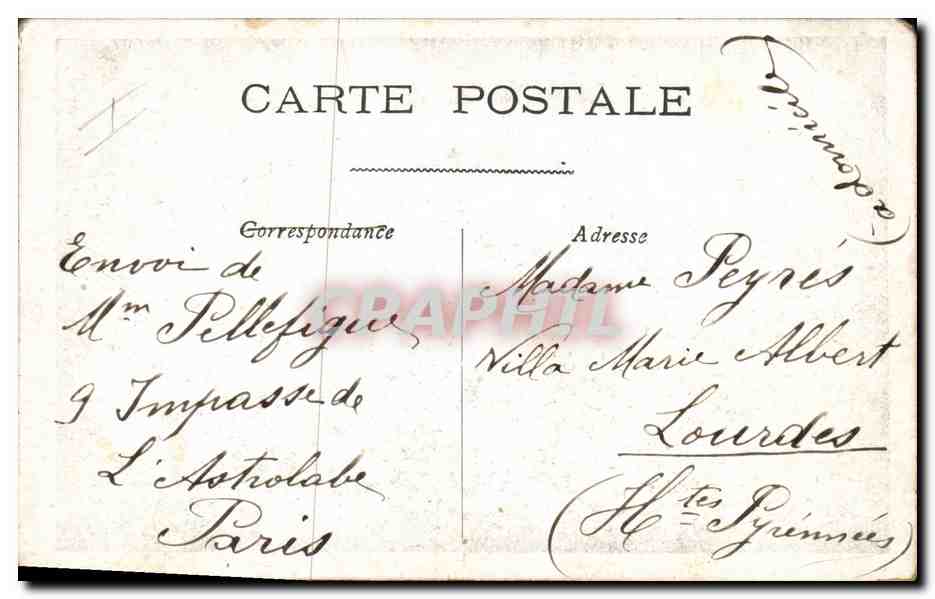 CARTE POSTALE
(à domicile)
Correspondance
Envoi de
Mm Pellefigue
9 Impasse de
L'Astrolabe
Paris
Adresse
Madame Peyrés
Villa Marie Albert
Lourdes
(Htes Pyrénnées)
CPAPHIL